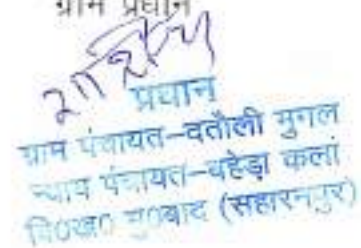 ग्राम प्रधान
प्रधान
ग्राम पंचायत–दतौली मुगल
न्याय पंचायत–बहेड़ा कलां
वि०ख० मु०बाद (सहारनपुर)